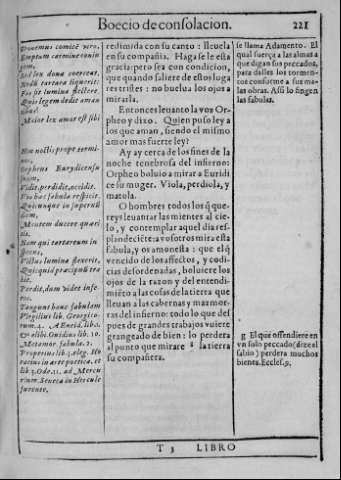 Boecio de consolacion.
221
Donemus comitẽ viro,
Emptam carmine coniu
gem,
Sed lex dona coerceat,
Ne dũ tartara liquerit:
Fas sit lumina flectere.
Quis legem dedit aman
tibus?
Maior lex amor est sibi
Heu noctis prope termi
nos,
Orpheus Eurydicem su
am,
Vidit, perdidit, occidit.
Vos hæc fabula respicit.
Quicunque in superum
diem,
Mentem ducere quæri
tis.
Nam qui tartareum in
specus,
Victus lumina flexerit,
Quicquid præcipuũ tra
hit.
Perdit, dum videt infe
ros.
Tangunt hanc fabulam
Virgilius lib. Georgico
rum. 4. Aeneid. lib. 6.
& alibi. Ouidius lib. 10.
Metamor. fabula. 1.
Propertius lib. 3. eleg. Ho
ratius in arte poetica, et
lib. 3. Ode. 11. ad Mercu
rium. Seneca in Hercule
furente.
redimida con su canto: lleuela
en su compañia. Haga se le esta
gracia: pero sea con condicion,
que quando saliere de estos luga
res tristes: no buelua los ojos a
mirarla.
Entonces leuanto la voz Or
pheo y dixo. Quien puso ley a
los que aman, siendo el mismo
amor mas fuerte ley?
Ay ay cerca de los fines de la
noche tenebrosa del infierno:
Orpheo boluio a mirar a Euridi
ce su muger. Viola, perdiola, y
matola.
O hombres todos los q̃ que-
reys leuantar las mientes al cie-
lo, y contemplar aquel dia res-
plandeciẽte: a vosotros mira esta
fabula, y os amonesta: que el q̃
vencido de los affectos, y codi-
cias desordenadas, boluiere los
ojos de la razon y del entendi-
miẽto a las cosas de la tierra que
lleuan a las cabernas y mazmor-
ras del infierno: todo lo que des
pues de grandes trabajos vuiere
grangeado de bien: lo perdera
al punto que mirare g la tierra
su compañera.
se llama Adamento. El
qual fuerça a las almas a
que digan sus peccados,
para darles los tormen-
tos conforme a sus ma-
las obras. Assi lo fingen
las fabulas.
g El que offendiere en
vn solo peccado (dize el
sabio) perdera muchos
bienes. Eccles. 9.
T 3 LIBRO